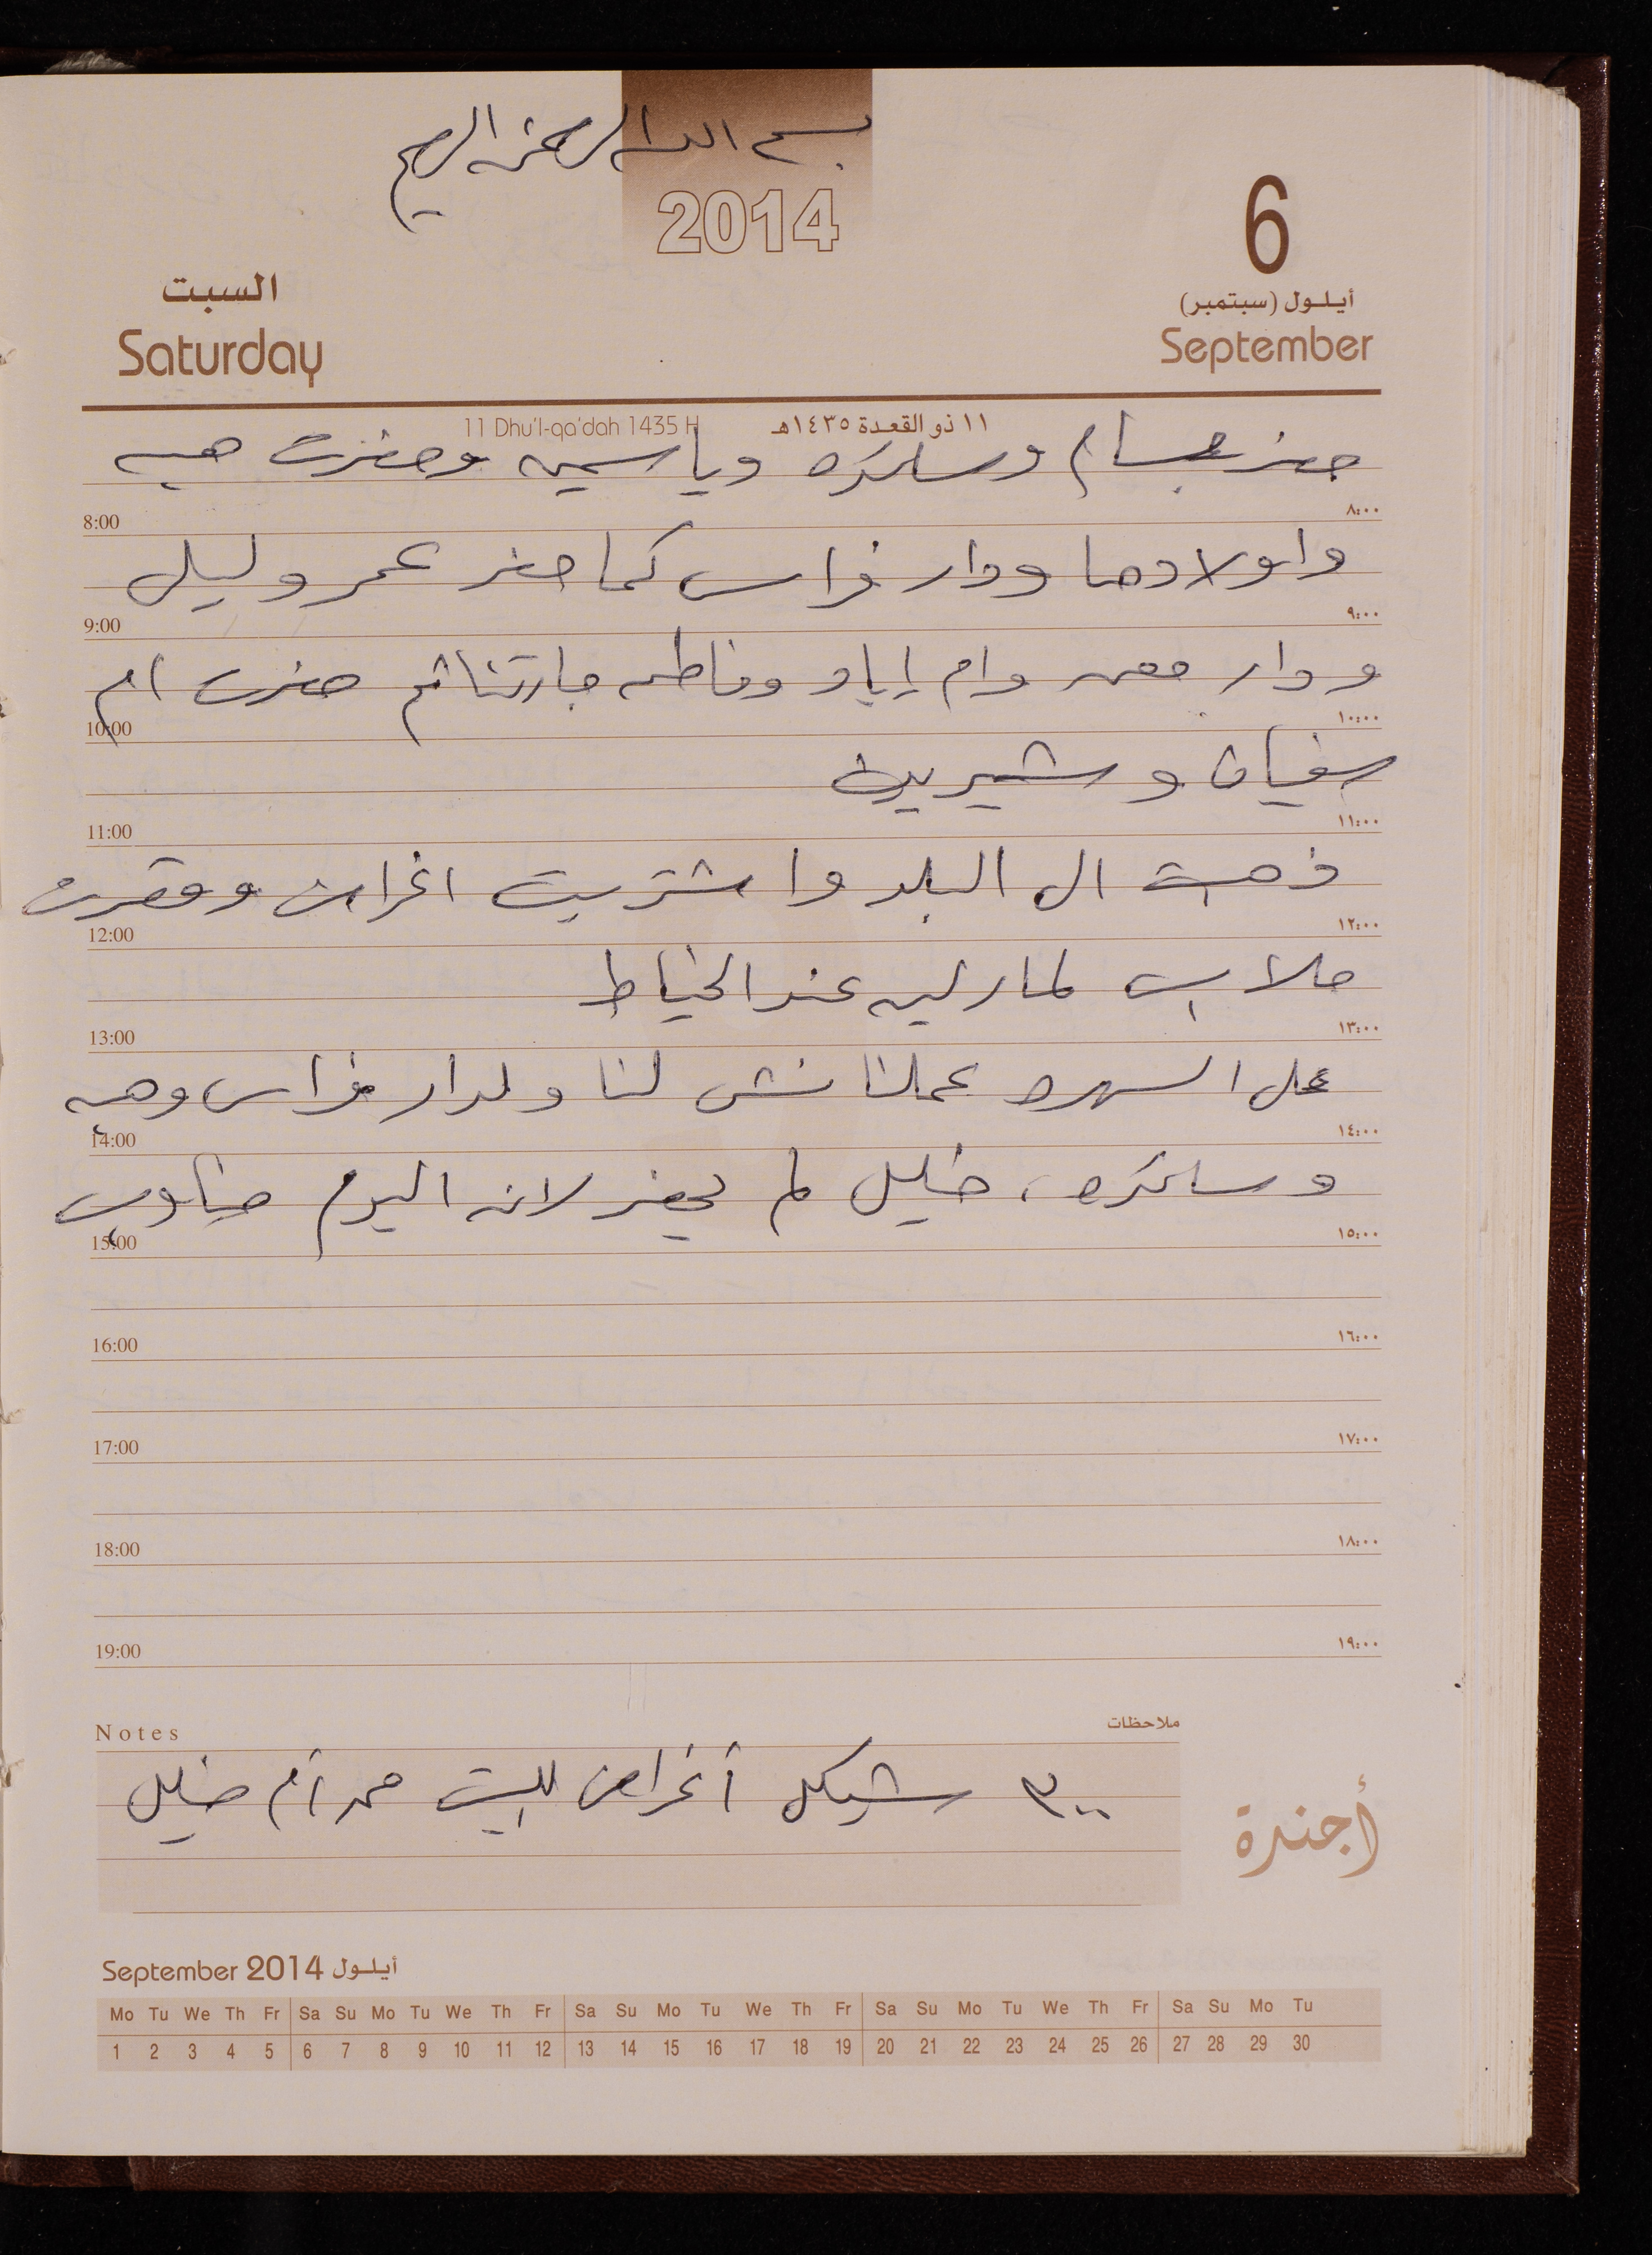 بسم الله الرحمن الرحيم
2014
6
أيلول (سبتمبر)
September
السبت
Saturday
11 Dhu'l-qa'dah 1435 H ١١ ذو القعدة ١٤٣٥هـ
حضر بسام وساره وياسمين وحضرت هبه
8:00 ٨:٠٠
واولادها ودار فراس كما حضر عمر وليل
9:00 ٩:٠٠
ودار معمر وام اياد وفاطمه جارتنا ثم حضرت ام
10:00 ١٠:٠٠
سفيان وشيرين
11:00 ١١:٠٠
ذهبت ال البلد واشتريت اغراض
12:00 ١٢:٠٠
عند الخياط
13:00 ١٣:٠٠
عل السهره عملنا لنا ولدار فراس وهبه
14:00 ١٤:٠٠
وساره، خليل لم يحضر لانه اليوم مناوب
15:00 ١٥:٠٠
16:00 ١٦:٠٠
17:00 ١٧:٠٠
18:00 ١٨:٠٠
19:00 ١٩:٠٠
Notes ملاحظات
٣٠٠ شيكل أغراض للبيت أم خليل
أجندة
September 2014 أيلول
Mo Tu We Th Fr Sa Su Mo Tu We Th Fr Sa Su Mo Tu We Th Fr Sa Su Mo Tu We Th Fr Sa Su Mo Tu
1 2 3 4 5 6 7 8 9 10 11 12 13 14 15 16 17 18 19 20 21 22 23 24 25 26 27 28 29 30